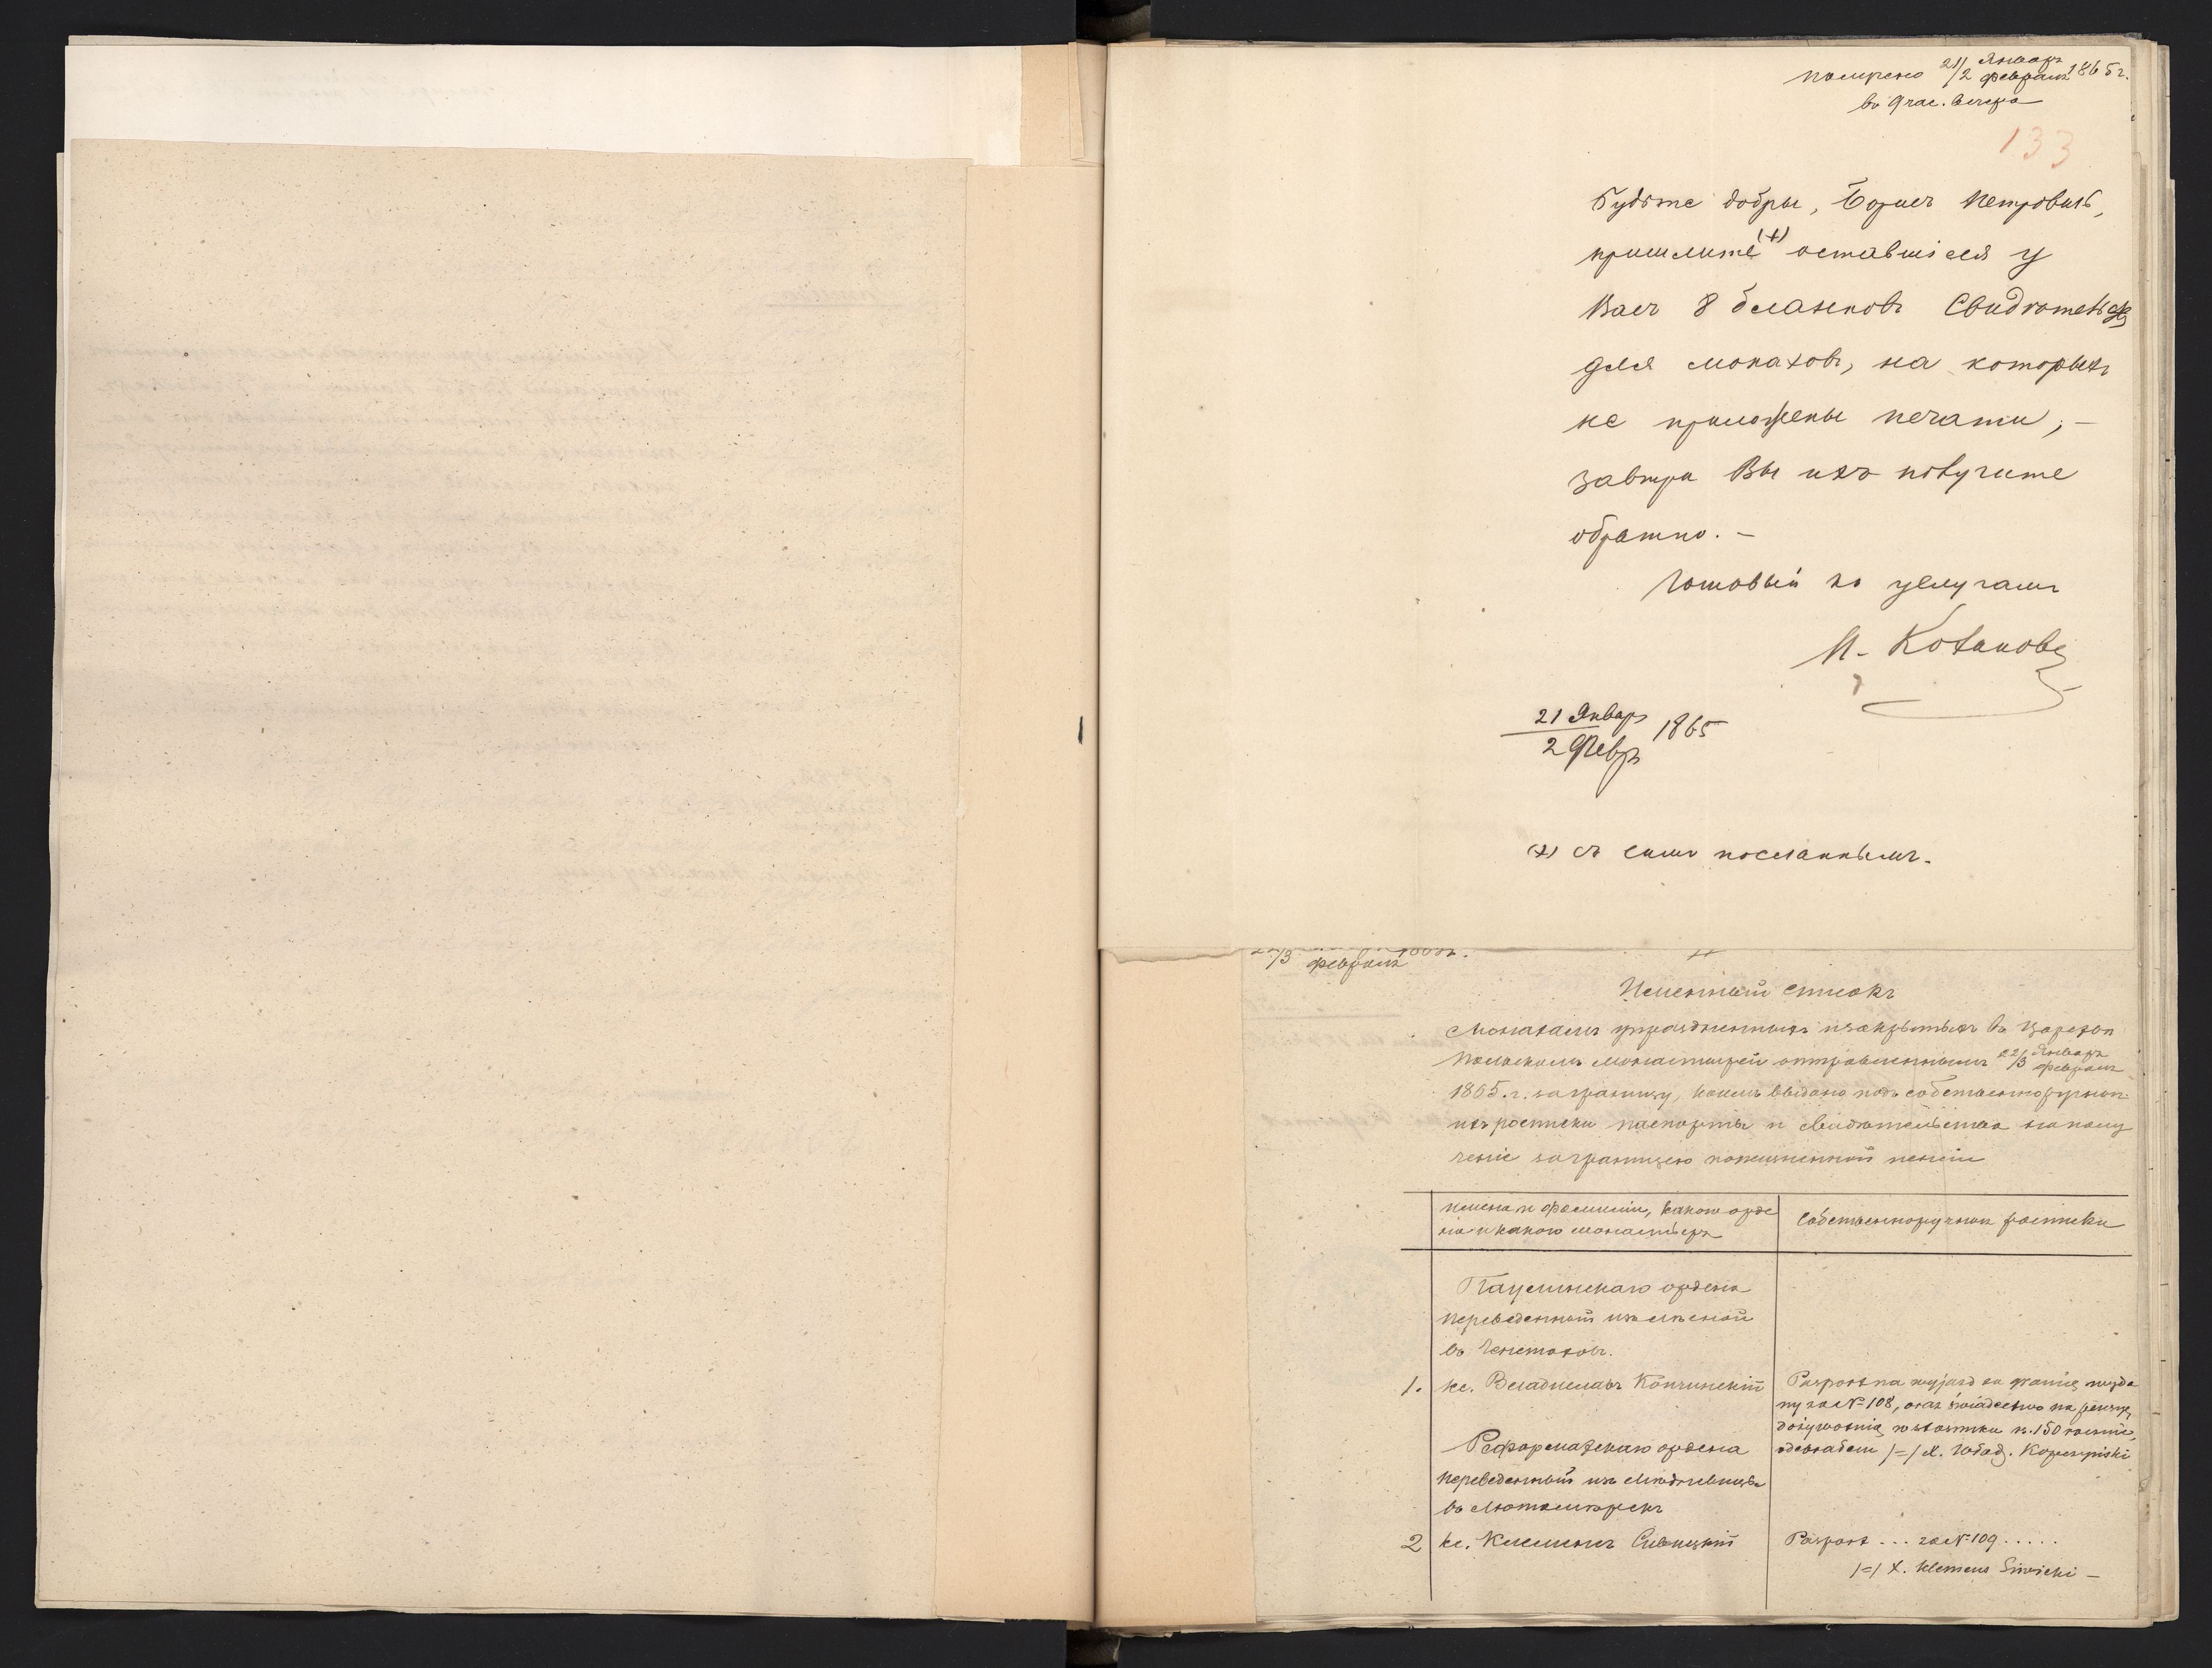 получено 21/2 Января/Февраля 1865 г.
въ 9 час. вечера
133
Будьте добры, Борисъ Петровичъ,
пришлите (+) оставшіеся у
Васъ 8 бланковъ Свидѣтельствъ
для монаховъ, на которыхъ
не приложены печати, —
завтра Вы ихъ получите
обратно. —
Готовый къ услугамъ
21 Январ 1865
2 Февр
(+) съ симъ посланнымъ.
/3 февраля
Именный списокъ
Монахамъ упраздненныхъ и закрытыхъ въ Царствѣ
Польскомъ Монастырей отправленнымъ 22/3 Января/Февраля
1865. г. заграницу, коимъ выдано подъ собственноручныя
ихъ росписки паспорты и свидѣтельства на полу
ченіе заграницею пожизненной пенсіи
имена и фамиліи, какого орде
на и какого монастыря
Собственноручныя росписки
Паулинскаго ордена
переведенный изъ
въ Ченстоховъ.
1. кс. Владиславъ Копчинскій
Paszport na wyjazd za granicę wyda
ny za № 108, oraz świadectwo na pensyę
dożywotnią w stosunku r. 150 rocznie,
odebrałem /=/ X. Wład. Kopczyński
Реформатскаго ордена
переведенный изъ
въ
2 кс. Клеменсъ Сивицкій
Paszport ... za № 109 .....
/=/ X. Klemens Siwicki —